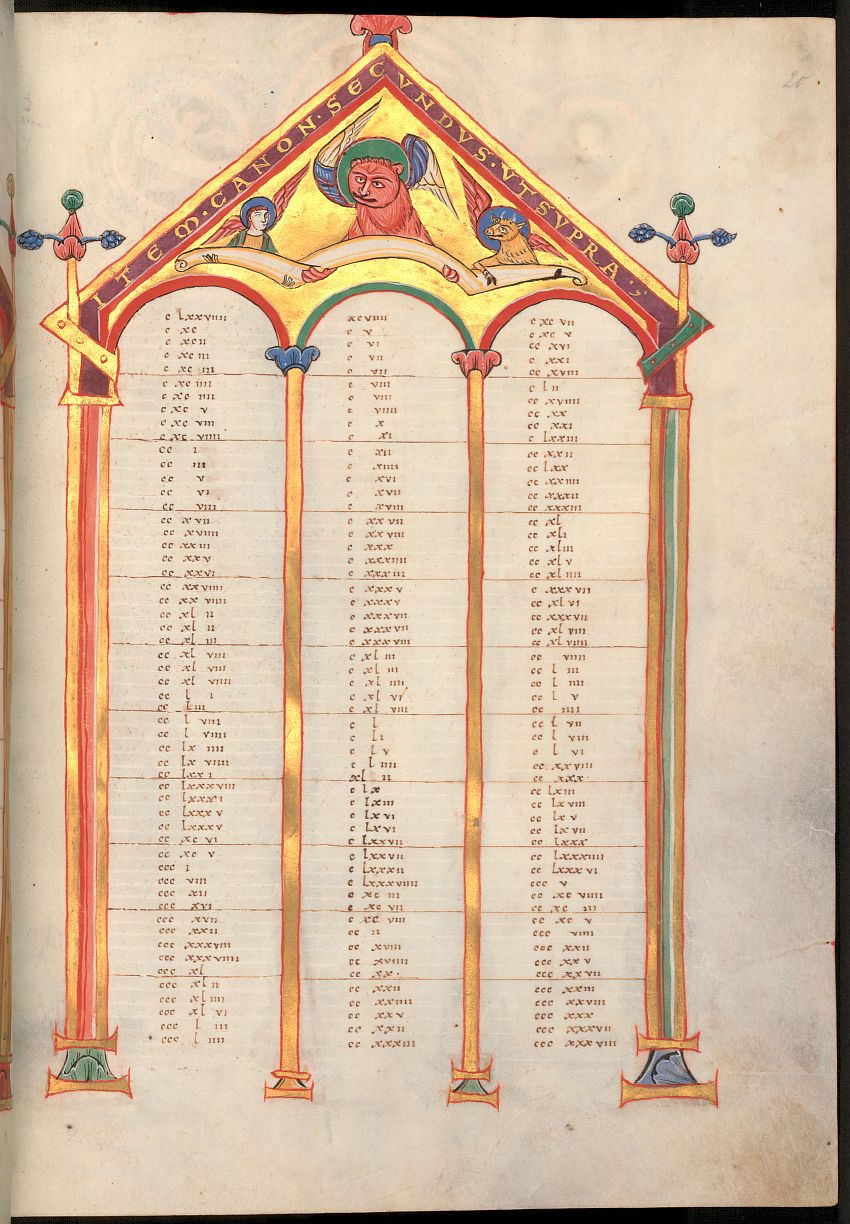 ITEM·CANON·SECVNDVS·VTSVPRA·;
20
c lxxviiii
c xc
c xcii
c xc iii
c xc iii
c xc iiii
c xc iiii
c xc v
c xc viii
c xc viiii
cc i
cc iii
cc v
cc vi
cc viii
cc xvii
cc xviiii
cc xx iii
cc xx v
cc xxvi
cc xxviiii
cc xx viiii
cc xl ii
cc xl ii
cc xl iii
cc xl viii
cc xl viii
cc xl viiii
cc l i
cc liii
cc l viii
cc l viiii
cc lx iiii
cc lx viiii
cc lxx i
cc lxxxviii
cc lxxxi
cc lxxx v
cc lxxxv
cc xc vi
cc xc v
ccc i
ccc viii
ccc xii
ccc xvi
ccc xvii
ccc xxii
ccc xxxviii
ccc xxxviiii
ccc xl
ccc xl ii
ccc xl iiii
ccc xl vi
ccc l iii
ccc l iiii
xcviiii
c v
c vi
c vii
c vii
c viii
c viii
c viiii
c x
c xi
c xii
c xiiii
c xvi
c xvii
c xviii
c xx vii
c xx viii
c xxx
c xxxiiii
c xxx iii
c xxx v
c xxxv
c xxxvii
c xxxvii
c xxxviii
c xl iii
c xl iii
c xl iiii
c xl vi
c xl viii
c l
c li
c l v
c l iiii
xl ii
c lx
c lxiii
c lxvi
c lxvi
c lxxvii
c lxxvii
c lxxxii
c lxxxviiii
c xc iii
c xc vii
c xc viii
cc ii
cc xviii
cc xviiii
cc xx·
cc xxii
cc xxiiii
cc xxv
cc xxii
cc xxxiii
c xc vii
c xc v
cc xvi
cc xxi
cc xviii
c l ii
cc xviiii
cc xx
cc xxi
c lxxiii
cc xxii
cc lxx
cc xxiiii
cc xxxii
cc xxxiii
cc xl
cc xli
cc xliii
cc xl v
cc xl iiii
c xxx vii
cc xl vi
cc xxxvii
cc xl viii
cc xl viiii
cc viiii
cc l iii
cc l iiii
cc l v
cc iiii
cc l vii
cc l viii
c l vi
cc xxviii
cc xxx·
cc lxiii
cc lx viii
cc lx v
cc lx vii
cc lxxx
cc lxxxiiii
cc lxxx vi
ccc v
cc xc viiii
cc xc iii
cc xc v
ccc viiii
ccc xxii
ccc xx v
ccc xxvii
ccc xxiii
ccc xxviii
ccc xxx
ccc xxxvii
ccc xxx viii